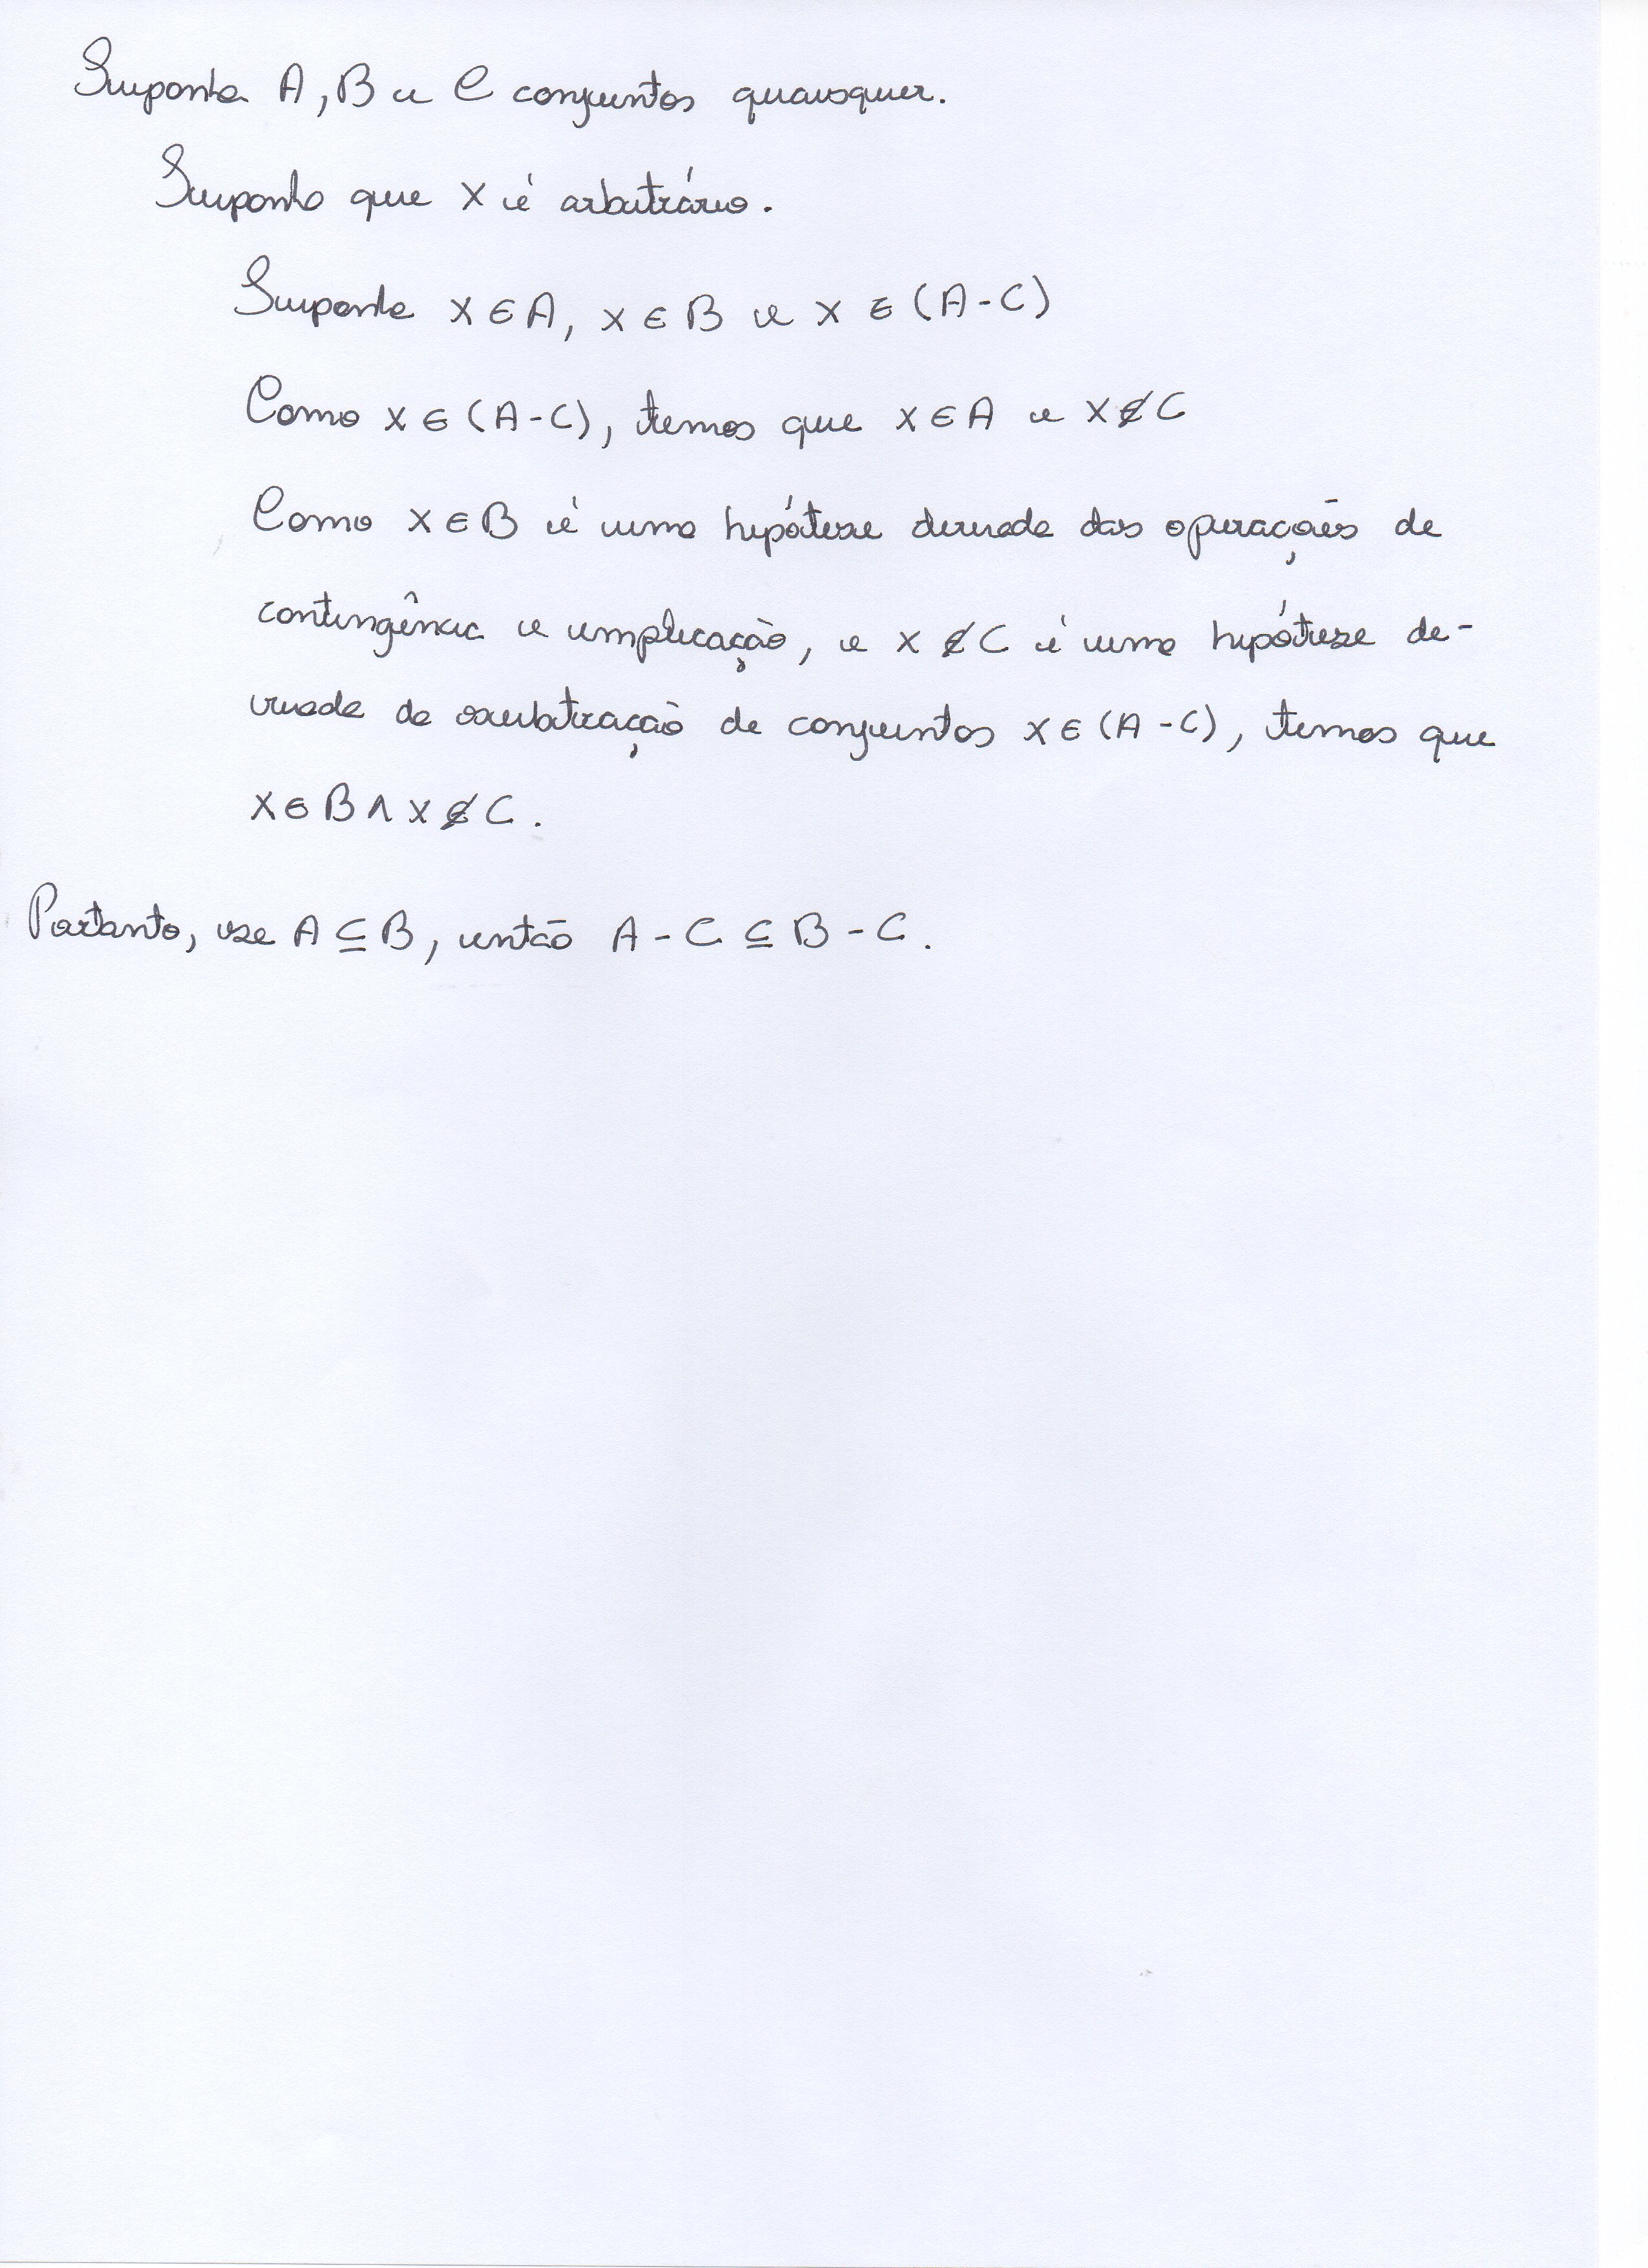 Suponha A, B e C conjuntos quaisquer.
Suponho que x é arbitrário.
Suponha x ∈ A, x ∈ B e x ∈ (A-C)
Como x ∈ (A-C), temos que x ∈ A e x ∉ C
Como x ∈ B é uma hipótese derivada das operações de
contingência e implicação, e x ∉ C é uma hipótese de-
rivada da subtração de conjuntos x ∈ (A-C), temos que
x ∈ B ∧ x ∉ C.
Portanto, se A ⊆ B, então A - C ⊆ B - C.